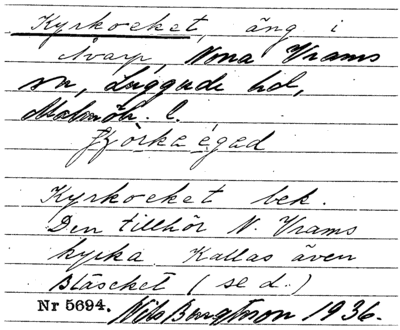 Kyrkocket, äng i
Åvarp, Norra Vrams
sn, Luggude hd,
Malmöh. l.
Kyrkocket bek.
Den tillhör N. Vrams
kyrka. Kallas även
Bläscket (se d.)
Nr 5694. Nils Bengtsson 1936.